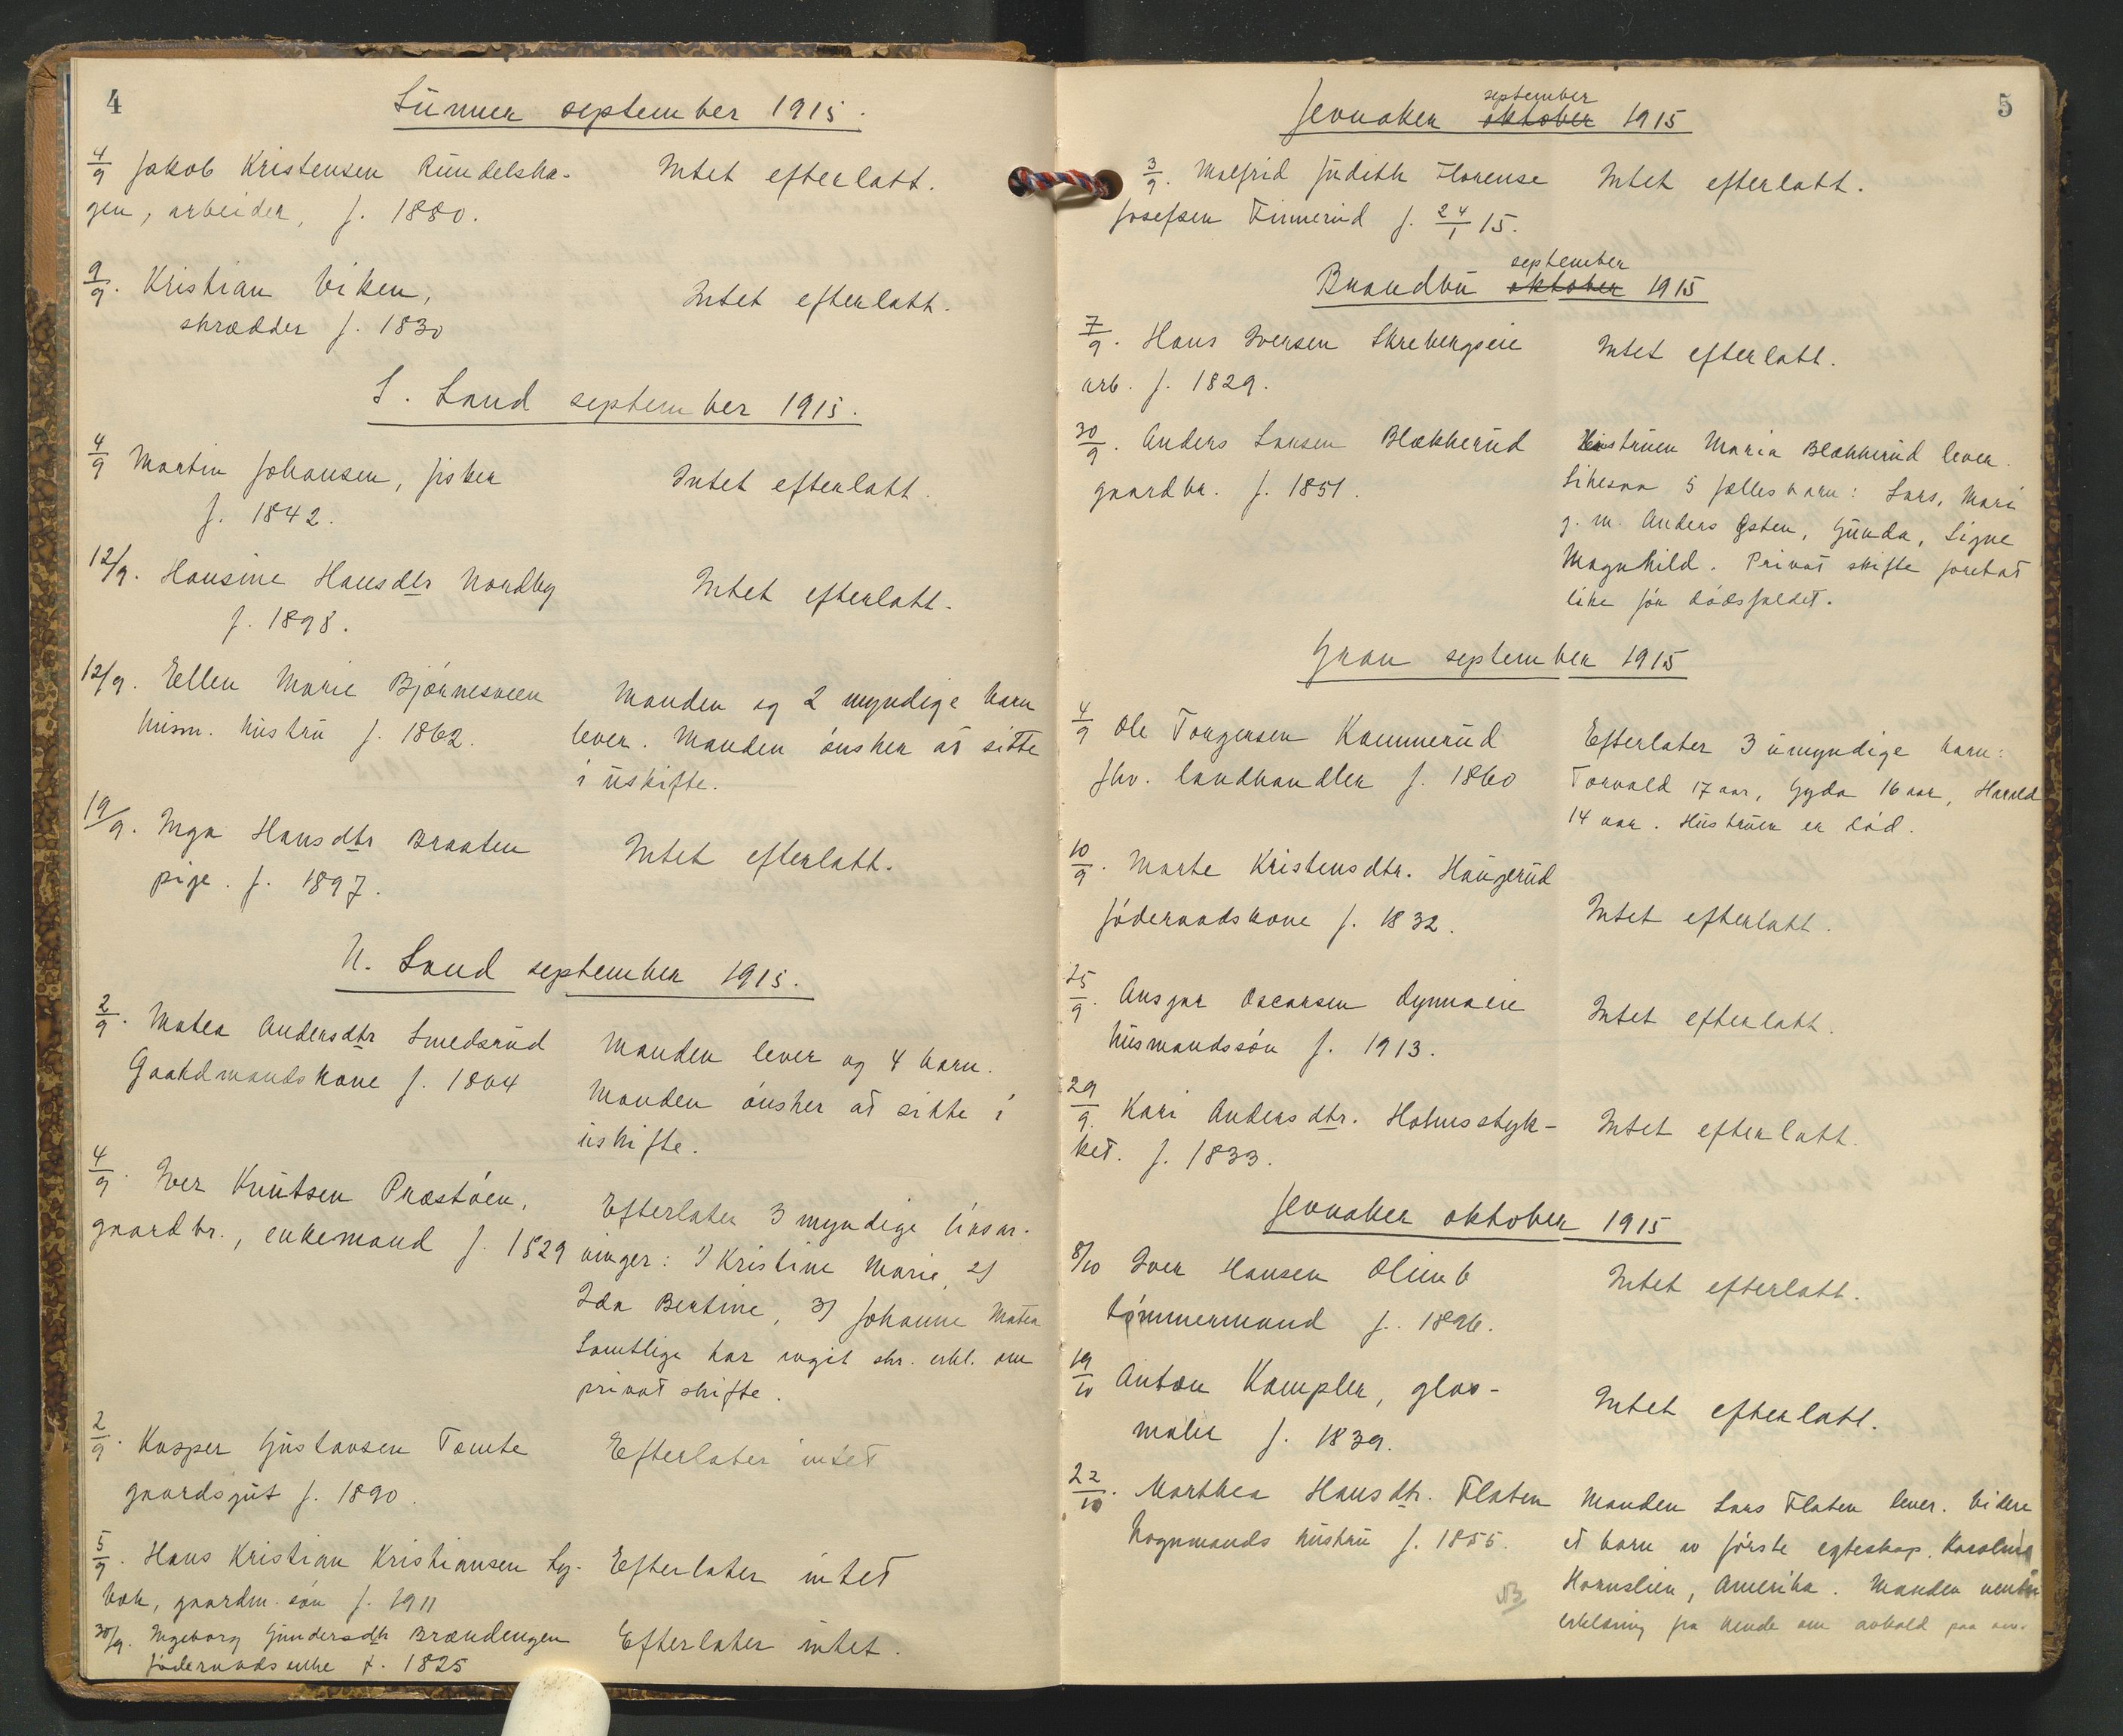 4
Lunner september 1915.
4/9 Jakob Kristensen Rundelsha-
gen, arbeider, f. 1880.
Intet efterlatt.
9/9. Kristian Viken,
skrædder f. 1830
Intet efterlatt.
S. Land september 1915.
4/9 Martin Johansen, fisker
f. 1842.
Intet efterlatt.
12/9. Hansine Hansdtr Nordby
f. 1898.
Intet efterlatt.
12/9. Ellen Marie Bjørnesveen
husm. hustru f. 1862.
Manden og 2 myndige barn
lever. Manden ønsker at sitte
i uskifte.
19/9. Inga Hansdtr Braaten
pige. f. 1897.
Intet efterlatt.
N. Land september 1915.
2/9. Matea Andersdtr Smedsrud
Gaardmandskone f. 1864
Manden lever og 4 barn.
Manden ønsker at sitte i
uskifte.
4/9. Iver Knutsen Præstøen,
gaardbr., enkemand f. 1829
Efterlater 3 myndige livsar-
vinger: 1) Kristine Marie, 2)
Ida Bertine, 3) Johanne Matea
Samtlige har avgit skr. erkl. om
privat skifte.
2/9. Kasper Gustavsen Tomte
gaardsgut f. 1890.
Efterlater intet
5/9. Hans Kristian Kristiansen Ly-
bæk, gaardm. søn f. 1911
Efterlater intet
30/9. Ingeborg Gundersdtr Brændengen
føderaadsenke f. 1825
Efterlater intet.
5
september
Jevnaker oktober 1915
3/9. Malfrid Judith Florense
Josefsen Finnerud f. 24/1 15.
Intet efterlatt.
september
Brandbu oktober 1915
7/9. Hans Iversen Skrebergseie
arb. f. 1829.
Intet efterlatt.
30/9. Anders Larsen Blækkerud
gaardbr. f. 1851.
Hustruen Maria Blækkerud lever.
Likesaa 5 fællesbarn: Lars, Mari
g. m. Anders Østen, Gunda, Signe
Magnhild. Privat skifte foretat
like før dødsfaldet.
Gran september 1915
4/9 Ole Torgersen Kammerud
fhv. landhandler f. 1860
Efterlater 3 umyndige barn:
Torvald 17 aar, Gyda 16 aar, Harald
14 aar. Hustruen er død.
10/9. Marte Kristensdtr. Haugerud
føderaadskone f. 1832.
Intet efterlatt.
25/9. Ansgar Oscarsen Dynnaeie
husmandssøn f. 1913.
Intet efterlatt.
29/9. Kari Andersdtr. Holmsstyk-
ket. f. 1833.
Intet efterlatt.
Jevnaker oktober 1915
8/10 Iver Hansen Olimb
tømmermand f. 1826.
Intet efterlatt.
19/10 Anton Kampler, glas-
maler f. 1839.
Intet efterlatt.
22/10. Marthea Hansdtr. Flaten
Vognmands hustru f. 1855.
Manden Lars Flaten lever. Videre
et barn av første egteskap, Karoline
Hornslien, Amerika. Manden venter
NB
erklæring fra hende om avkald paa arv.